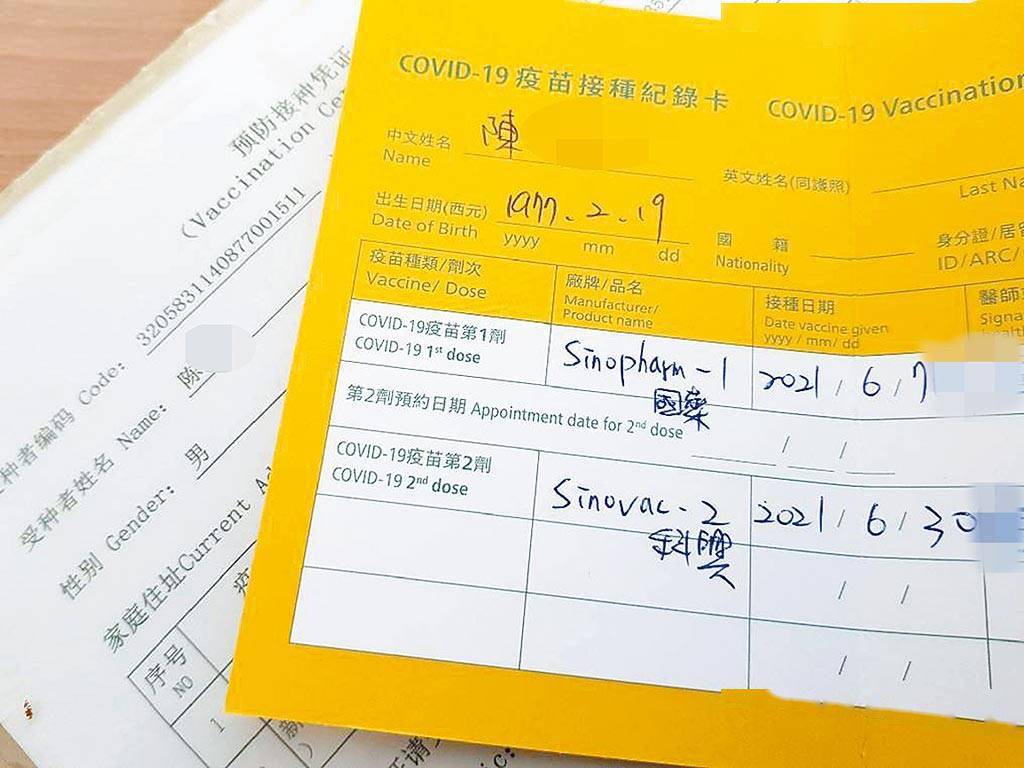 COVID-19 疫苗接種紀錄卡 COVID-19 Vaccination
中文姓名 陳
Name
英文姓名(同護照)
Last Na
出生日期(西元) 1977.2.19
Date of Birth yyyy mm dd
國籍
Nationality
身分證/居留
ID/ARC/
疫苗種類/劑次
Vaccine/ Dose
廠牌/品名
Manufacturer/
Product name
接種日期
Date vaccine given
yyyy / mm/ dd
醫師
Signa
COVID-19疫苗第1劑
COVID-19 1st dose
Sinopharm-1
國藥
2021 / 6 / 7
第2劑預約日期 Appointment date for 2nd dose / /
COVID-19疫苗第2劑
COVID-19 2nd dose
Sinovac-2
科興
2021 / 6 / 30
/ /
/ /
预防接种凭证
(Vaccination Ce
种者编码 Code: 3205831140877001511
受种者姓名 Name: 陈
性别 Gender: 男
家庭住址Current Ad
序号
NO
疫
1
新